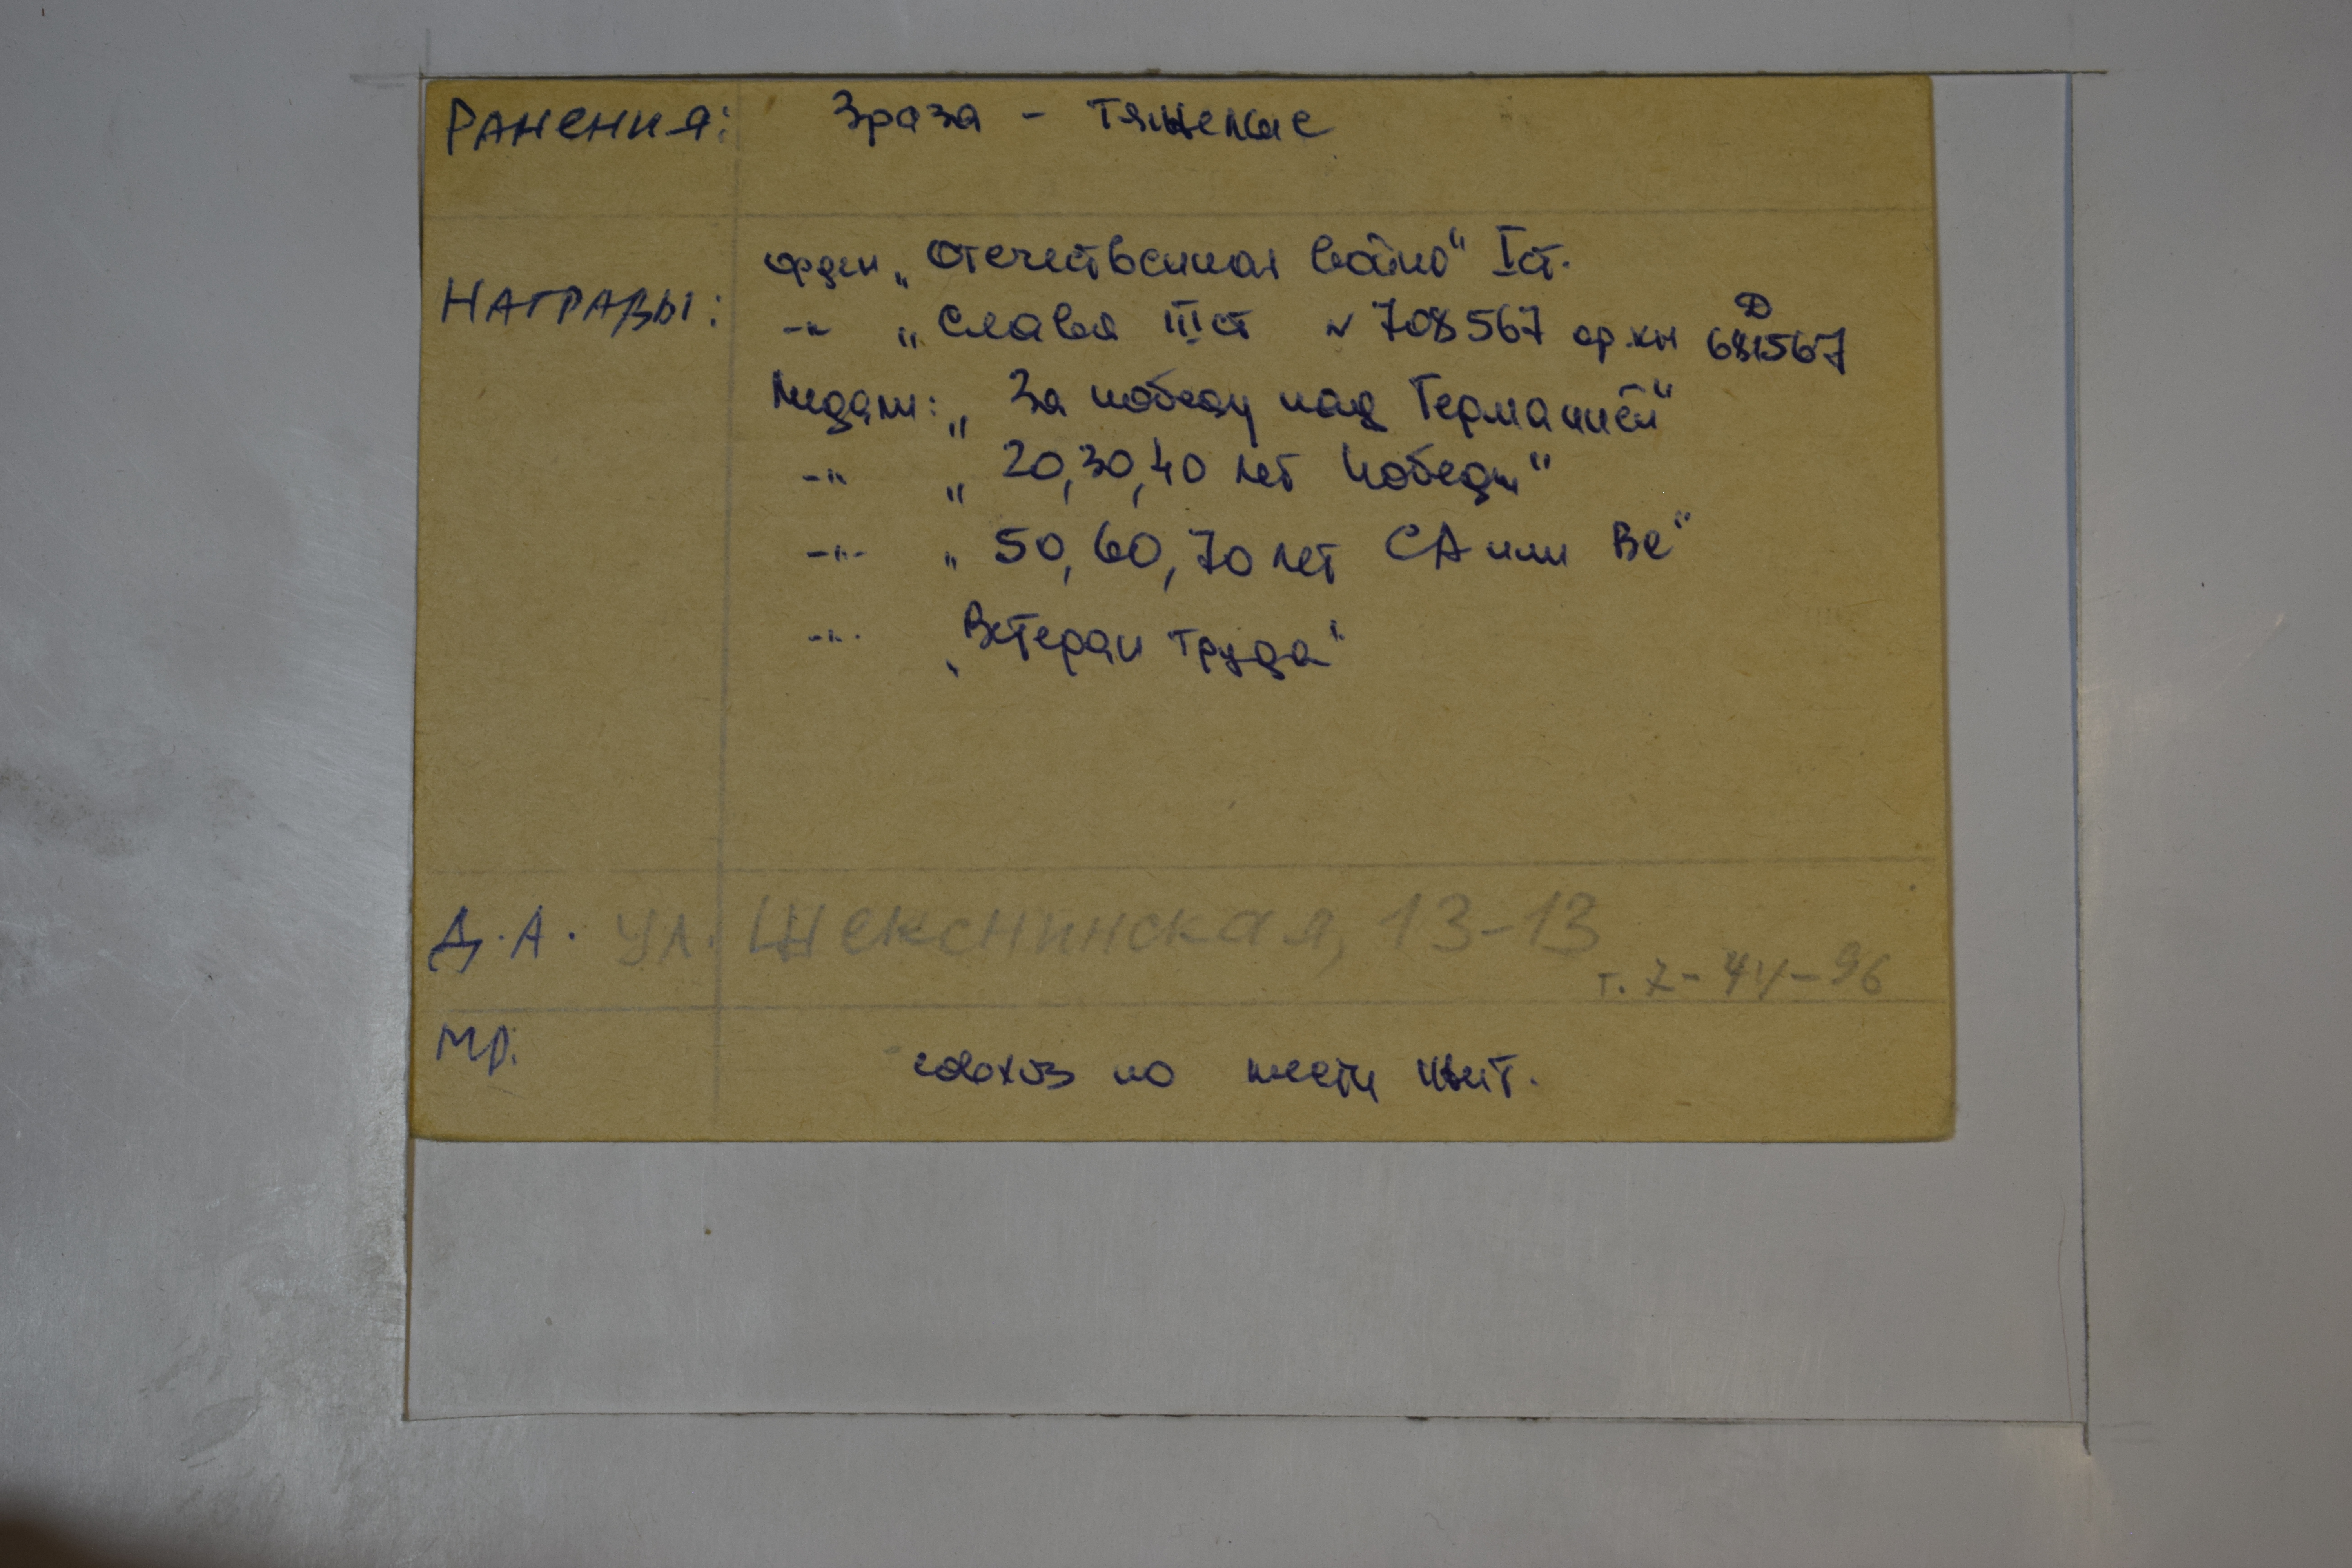 РАНЕНИЯ: 3 раза - тяжелые
орден „Отечественная война" I ст.
НАГРАДЫ: -"- „Слава III ст № 708567 ор.кн Д 681567
Медали: „За победу над Германией"
-"- „20,30,40 лет Победы"
-"- „50,60,70 лет СА или ВС"
-"- „Ветеран труда"
Д.А. ул. Шекснинская, 13-13
т. 7-44-96
МР. по жит.